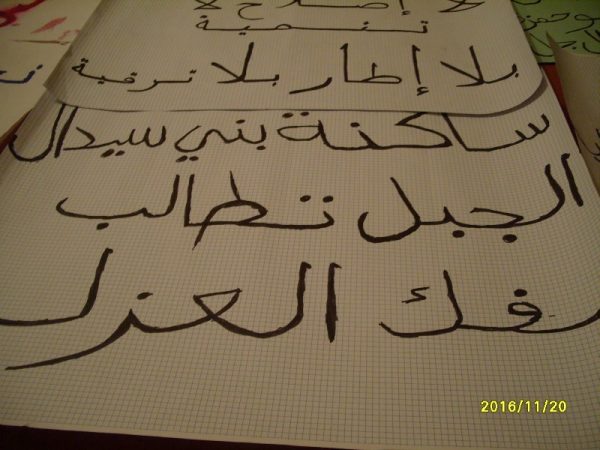 لا إصلاح لا
تنمية
بلا إطار بلا ترقية
ساكنة بني سيدال
الجبل تطالب
بفك العزل